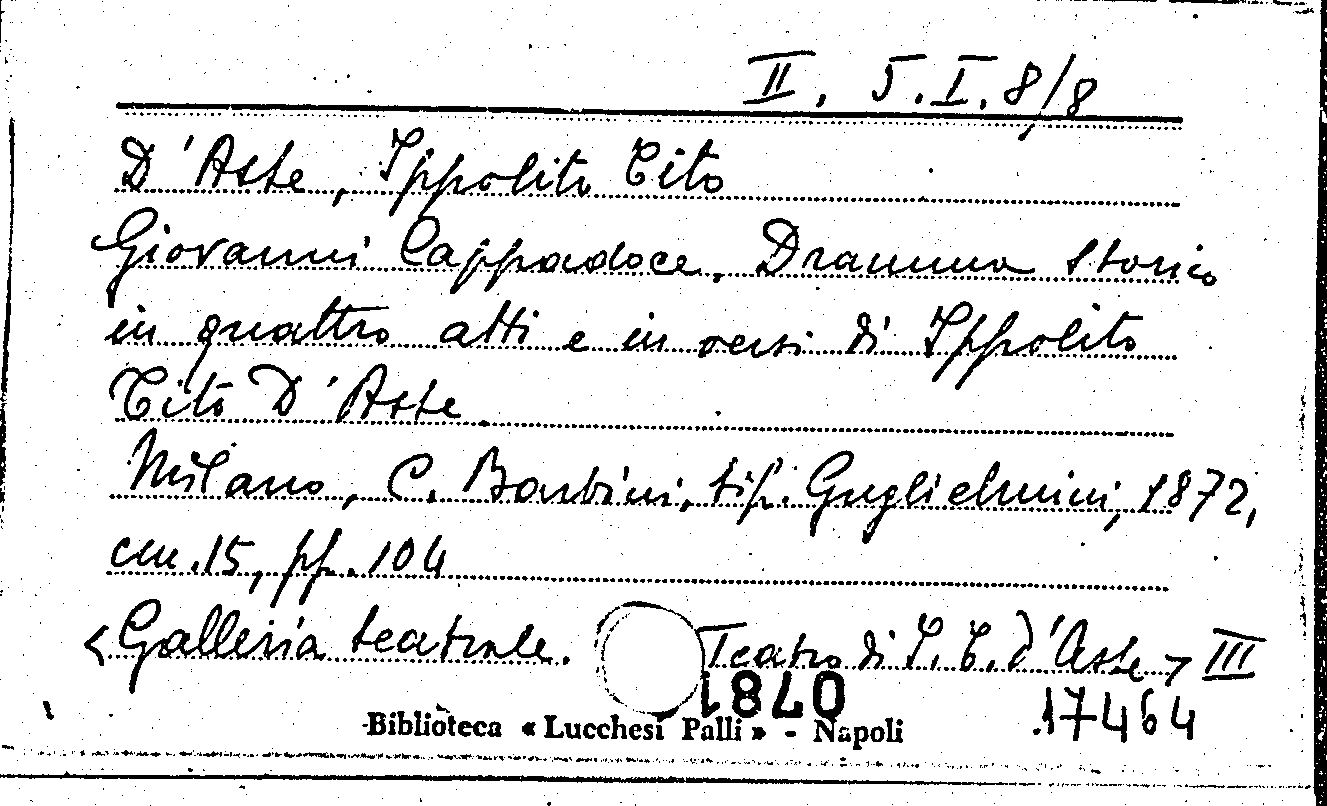 II. 5.I.8/8
D'Aste, Ippolito Tito
Giovanni Cappadoce. Dramma storico
in quattro atti e in versi di Ippolito
Tito D'Aste
Milano, C. Barbini, tip. Guglielmini, 1872,
cm.15, pp.104
<Galleria teatrale. Teatro di I. T. d'Aste> III
0781
17464
Biblioteca « Lucchesi Palli » - Napoli